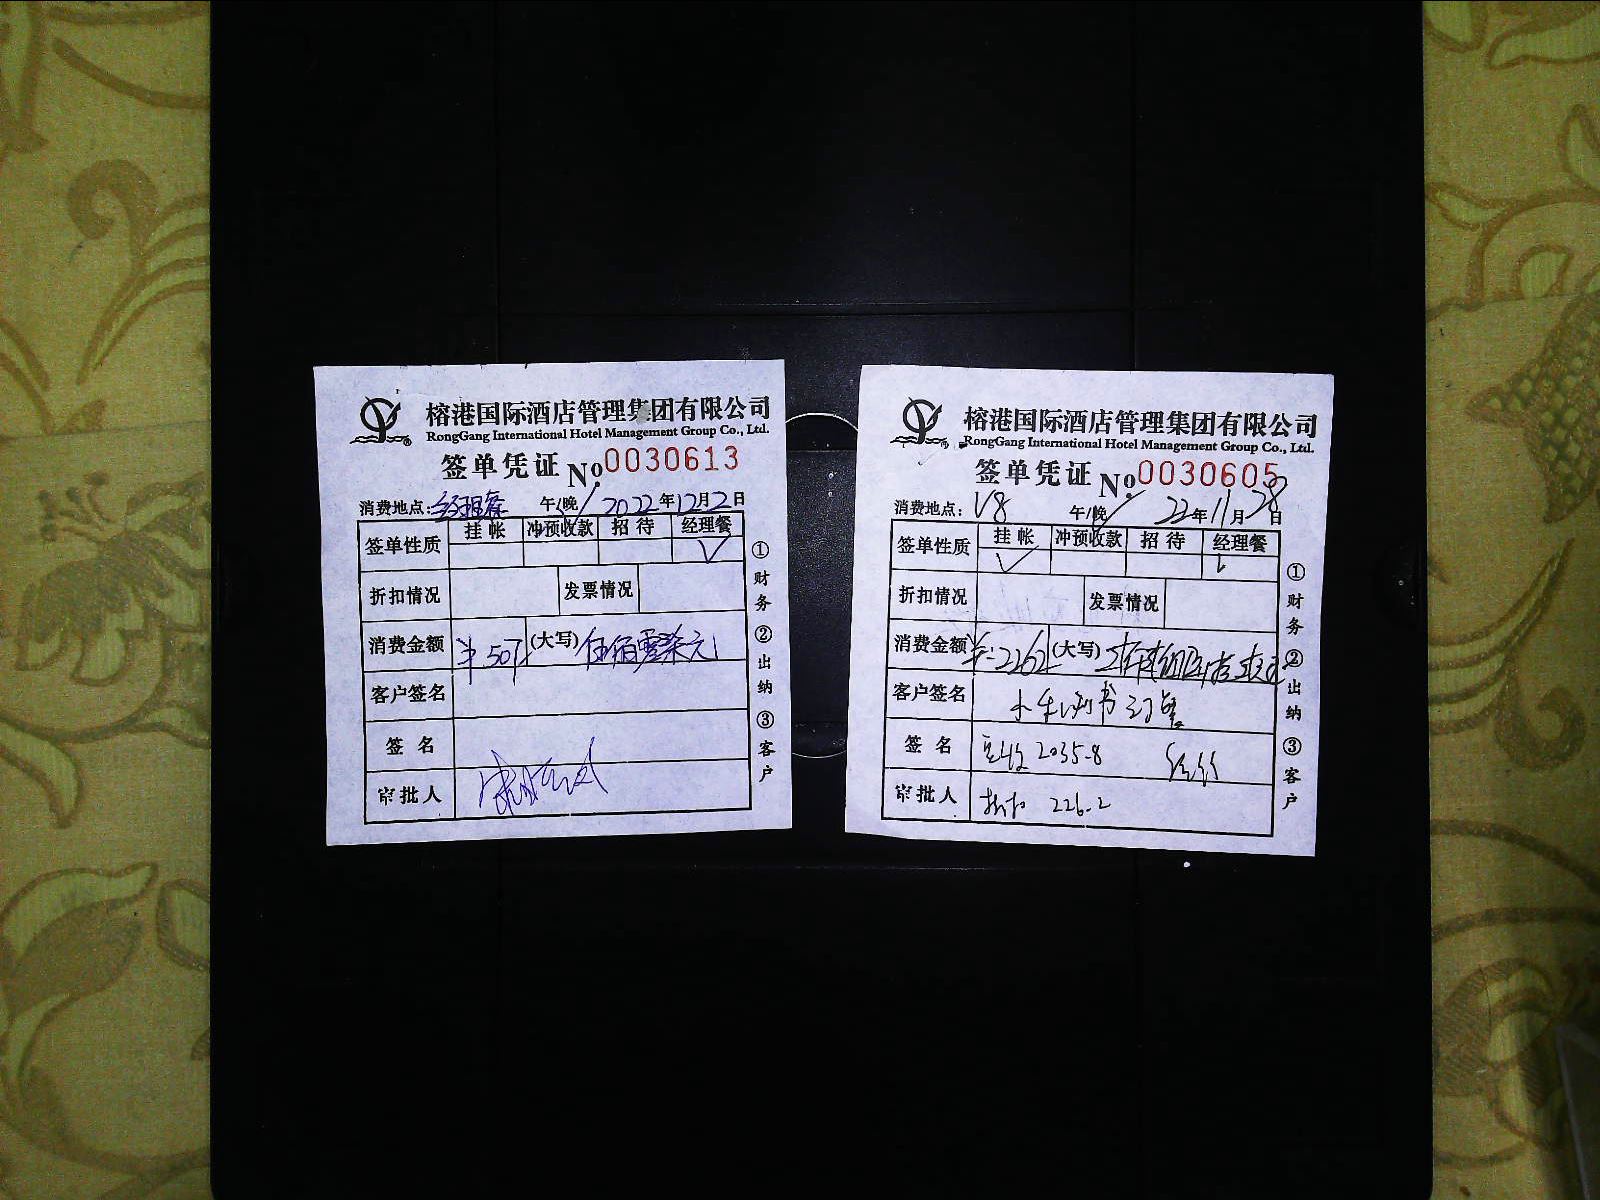 榕港国际酒店管理集团有限公司
RongGang International Hotel Management Group Co., Ltd.
签单凭证 No. 0030613
消费地点: 经理餐 午/晚 2022年12月2日
签单性质 挂帐 冲预收款 招待 经理餐
折扣情况 发票情况
消费金额 ¥507 (大写) 伍佰零柒元
客户签名
签名
审批人
①财务 ②出纳 ③客户
榕港国际酒店管理集团有限公司
RongGang International Hotel Management Group Co., Ltd.
签单凭证 No. 0030605
消费地点: V8 午/晚 22年11月28日
签单性质 挂帐 冲预收款 招待 经理餐
折扣情况 发票情况
消费金额 ¥:2262 (大写)
客户签名
签名 2035.8
审批人 折扣 226.2
①财务 ②出纳 ③客户